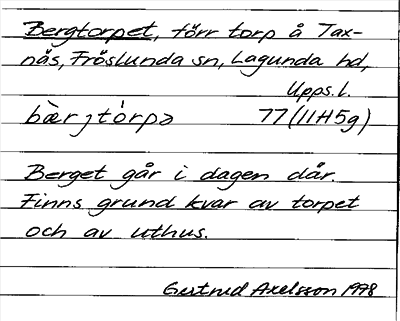 Bergtorpet, förr torp å Tax-
näs, Fröslunda sn, Lagunda hd,
Upps. l.
bæ̀rjtórpə 77 (11H5g)
Berget går i dagen där.
Finns grund kvar av torpet
och av uthus.
Gertrud Axelsson 1978